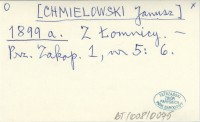 O [CHMIELOWSKI Janusz]
1899 a. Z Łomnicy. –
Prz. Zakop. 1, nr 5: 6.
BT/008/0095